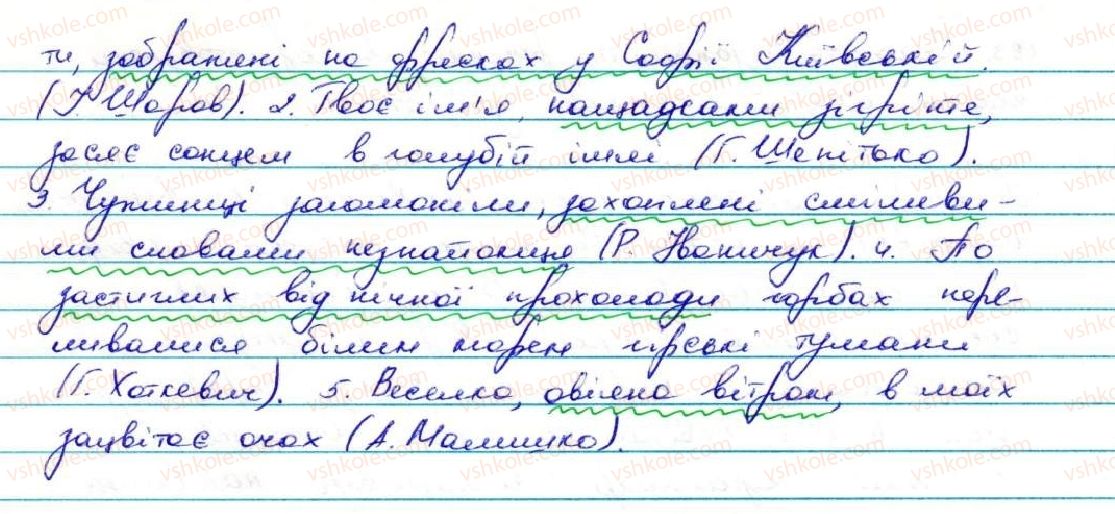 ти, зображені на фресках у Софії Київській.
(І. Шаров). 2. Твоє ім'я, нащадками зігріте,
засяє сонцем в голубій імлі (Г. Шепітько).
3. Чужинці загомоніли, захоплені сміливи-
ми словами незнайомця (Р. Іваничук). 4. По
застиглих від нічної прохолоди горбах пере-
ливалися білим морем гірські тумани
(Г. Хоткевич). 5. Веселка, овіяна вітром, в моїх
зацвітає очах (А. Малишко).